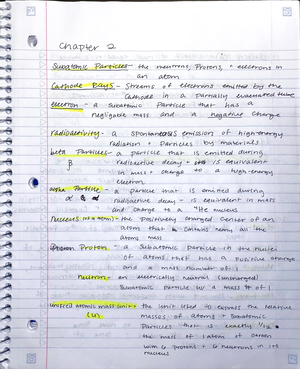 Chapter 2
Subatomic Particles - the neutrons, Protons, + electrons in
an atom
Cathode Rays - Streams of electrons emitted by the
Cathode in a partially evacuated tube
electron - a Subatomic Particle that has a
negligable mass and a negative Charge
radioactivity - a spontaneous emission of high-energy
radiation + Particles by materials
beta Particles - a particle that is emitted during
β radioactive decay + is equivalent
in mass + charge to a high-energy
electron
alpha Particle - a particle that is emitted during
α radioactive decay - is equivalent in mass
and charge to a ⁴He nucleus
nucleus (of a atom) - the positively charged center of an
atom that contains nearly all the
atoms mass
Proton - a Subatomic particle in the nuclei
of atoms that has a positive charge
and a mass number of 1
neutron - an electrically neutral (uncharged)
Subatomic particle w/ a mass # of 1
unified atomic mass unit - the unit used to express the relative
(u) masses of atoms + Subatomic
Particles that is exactly 1/12
the mass of 1 atom of carbon
with 6 protons + 6 neutrons in its
nucleus